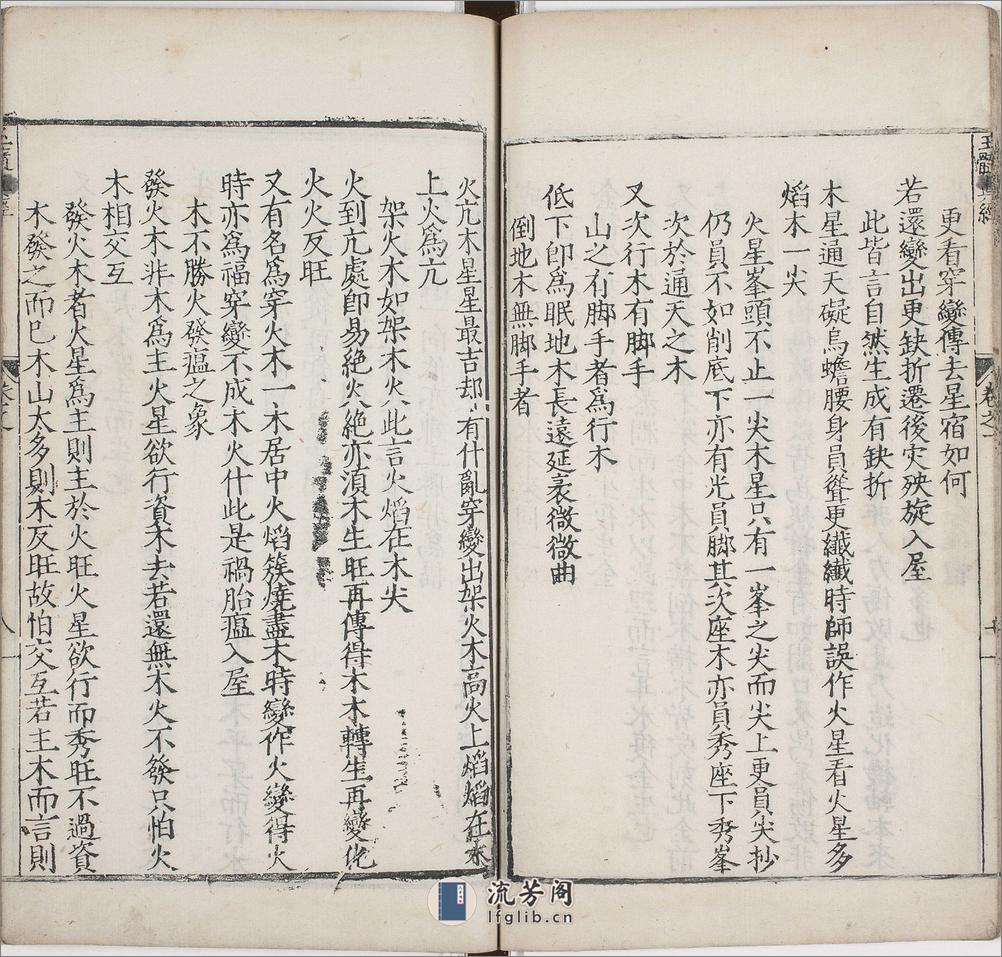 更看穿變傳去星宿如何
若還變出更缺折遷後灾殃旋入屋
此皆言自然生成有缺折
木星通天礙烏蟾腰身員聳更纖纖時師誤作火星看火星多
焰木一尖
火星峯頭不止一尖木星只有一峯之尖而尖上更員尖抄
仍員不如削底下亦有光員脚其次座木亦員秀座下秀峯
次於通天之木
又次行木有脚手
山之有脚手者為行木
低下卽為眠地木長遠延袤微微曲
倒地木無脚手者
火亢木星星最吉却有什亂穿變出架火木高火上焰焰在木
上火為亢
架火木如架木火此言火焰在木尖
火到亢處卽易絕火絕亦湏木生旺再傳得木木轉生再變化
火火反旺
又有名為穿火木一木居中火焰簇燒盡木時變作火變得火
時亦為福穿變不成木火什此是禍胎瘟入屋
木不勝火發瘟之象
發火木非木為主火星欲行資木去若還無木火不發只怕火
木相交互
發火木者火星為主則主於火旺火星欲行而秀旺不過資
木發之而巳木山太多則木反旺故怕交互若主木而言則
玉髓經
卷之
流芳阁
lfglib.cn